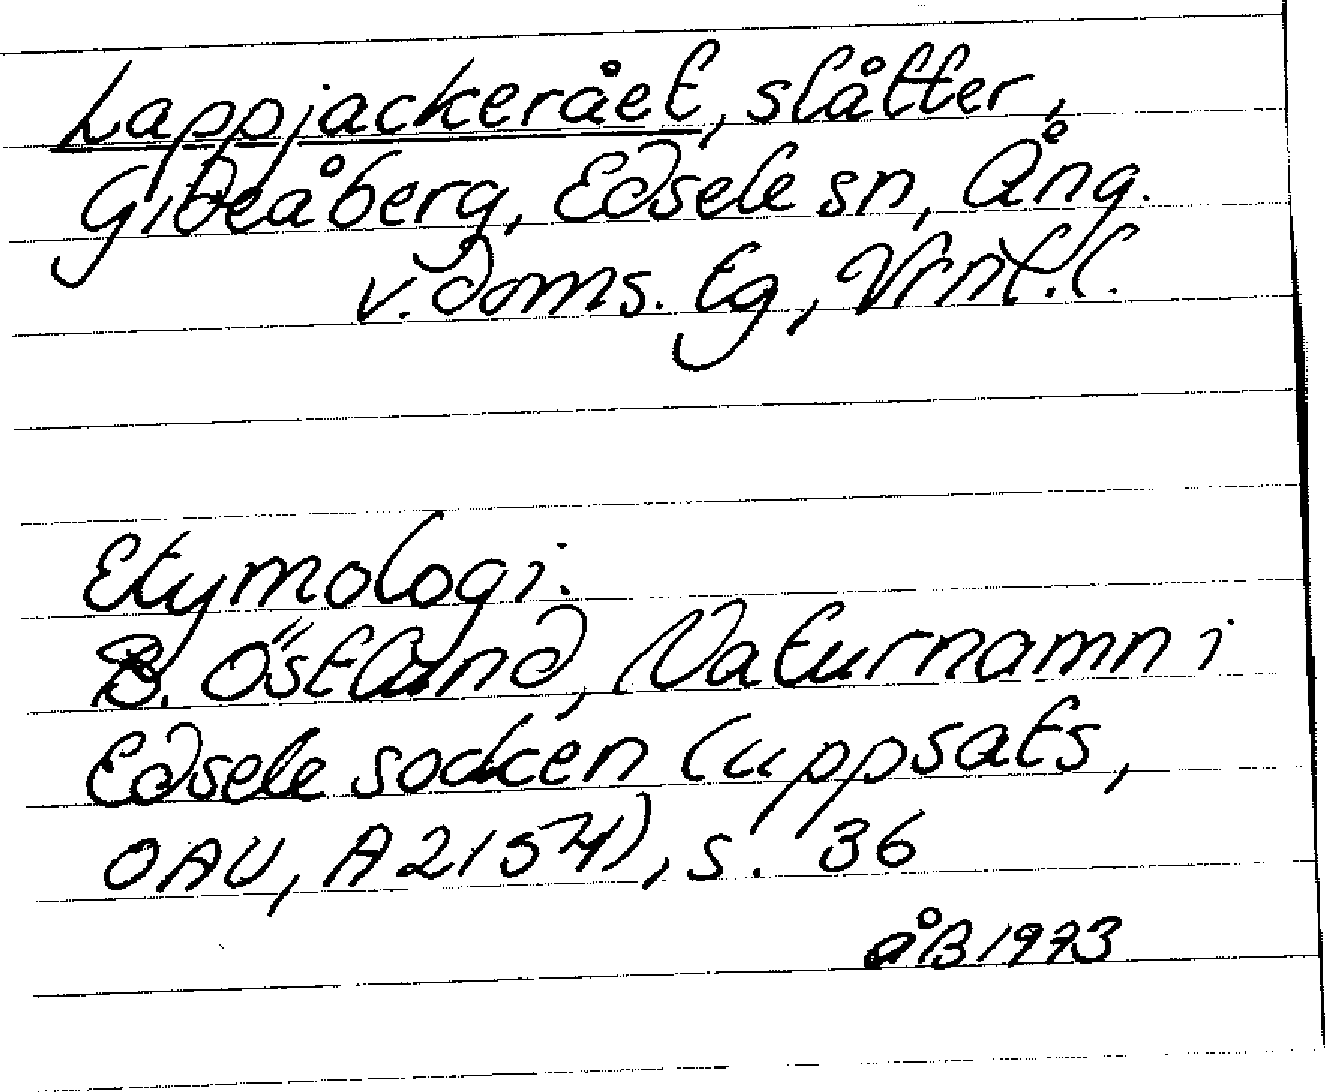 LappjackeråET, slåtter,
Gideåberg, Edsele sn, Ång.
v. doms. tg, Vrnl. l.
Etymologi.
B. Östlund, Naturnamn i
Edsele socken (uppsats,
OAU, A 2154), s. 36
åB 1973